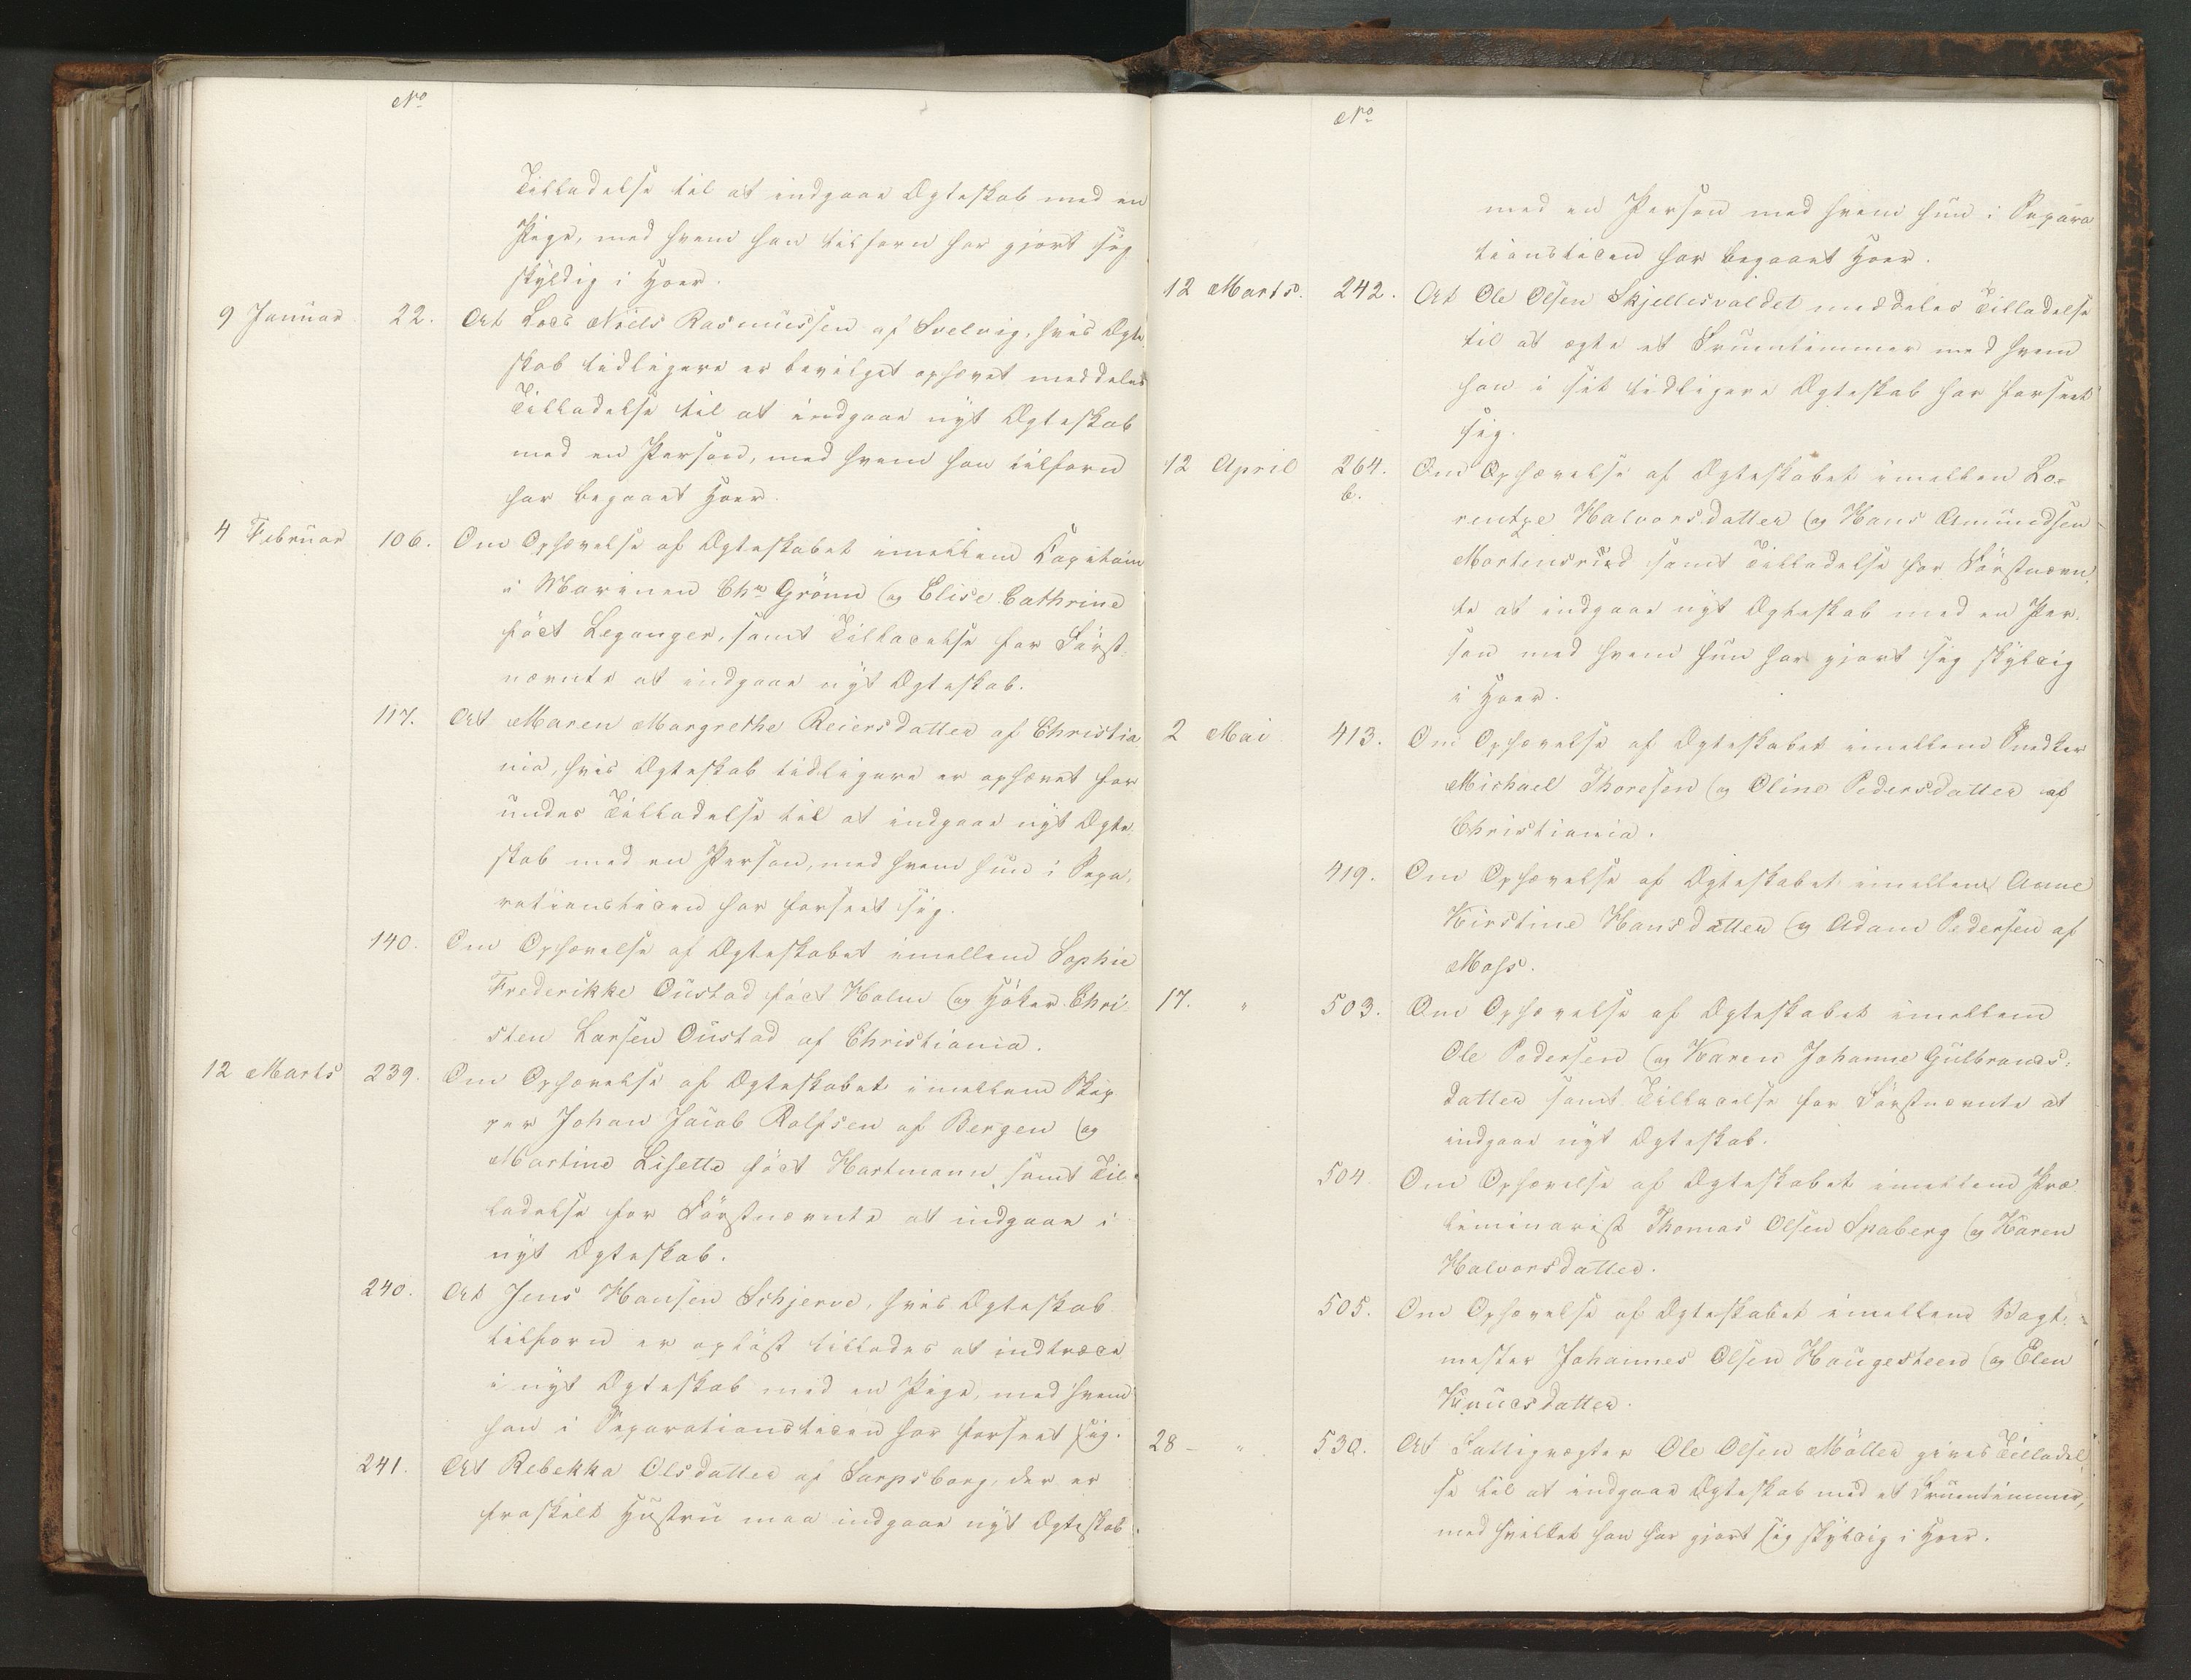 No
Tilladelse til at indgaae Ægteskab med en
Pige, med hvem han tilforn har gjort sig
skyldig i Hoer.
9 Januar 22. At Lods Niels Rasmussen af Svelvig, hvis Ægte
skab tidligere er bevilget ophævet meddeles
Tilladelse til at indgaae nyt Ægteskab
med en Person, med hvem han tilforn
har begaaet Hoer.
4 Februar 106. Om Ophævelse af Ægteskabet imellem Capitain
i Marinen Chr Grönn og Elise Cathrine
född Leganger, samt Tilladelse for Först-
nævnte at indgaae nyt Ægteskab.
117. At Maren Margrethe Reiersdatter af Christia
nia, hvis Ægteskab tidligere er ophævet for
undes Tilladelse til at indgaae nyt Ægte
skab med en Person, med hvem hun i Sepa-
rationstiden har forseet sig.
140. Om Ophævelse af Ægteskabet imellem Sophie
Frederikke Oustad föd Holm og Höker Chri-
sten Larsen Oustad af Christiania.
12 Marts 239. Om Ophævelse af Ægteskabet imellem Skip
per Johan Jacob Rolfsen af Bergen og
Martine Lisette föd Hartmann, samt Til-
ladelse for Förstnævnte at indgaae i
nyt Ægteskab.
240. At Jens Hansen Schjerve, hvis Ægteskab
tilforn er oplöst tillades at indtræde
i nyt Ægteskab med en Pige, med hvem
han i Separationstiden har forseet sig.
241. At Rebekka Olsdatter af Sarpsborg, der er
fraskilt Hustru maa indgaae nyt Ægteskab
No
med en Person med hvem hun i Separa
tionstiden har begaaet Hoer.
12 Marts. 242. At Ole Olsen Skjellesvaldet meddeles Tilladelse
til at ægte et Fruentimmer med hvem
han i sit tidligere Ægteskab har forseet
sig.
12 April 264. Om Ophævelse af Ægteskabet imellem Lo-
b.
rentze Halvorsdatter og Hans Amundsen
Mortensrud samt Tilladelse for Förstnævn-
te at indgaae nyt Ægteskab med en Per-
son med hvem hun har gjort sig skyldig
i Hoer.
2 Mai 413. Om Ophævelse af Ægteskabet imellem Snedker
Michael Thoresen og Oline Pedersdatter af
Christiania.
419. Om Ophævelse af Ægteskabet imellem Anne
Kirstine Hansdatter og Adam Pedersen af
Moss.
17. " 503. Om Ophævelse af Ægteskabet imellem
Ole Pedersen og Karen Johanne Gulbrands-
datter samt Tilladelse for Förstnævnte at
indgaae nyt Ægteskab.
504. Om Ophævelse af Ægteskabet imellem Præ
liminarist Thomas Olsen Spaberg og Karen
Halvorsdatter.
505. Om Ophævelse af Ægteskabet imellem Vagt-
mester Johannes Olsen Haugesteen og Elen
Knudsdatter.
28 - " 530. At Fattigvægter Ole Olsen Möller gives Tilladel
se til at indgaae Ægteskab med et Fruentimmer,
med hvilket han har gjort sig skyldig i Hoer.